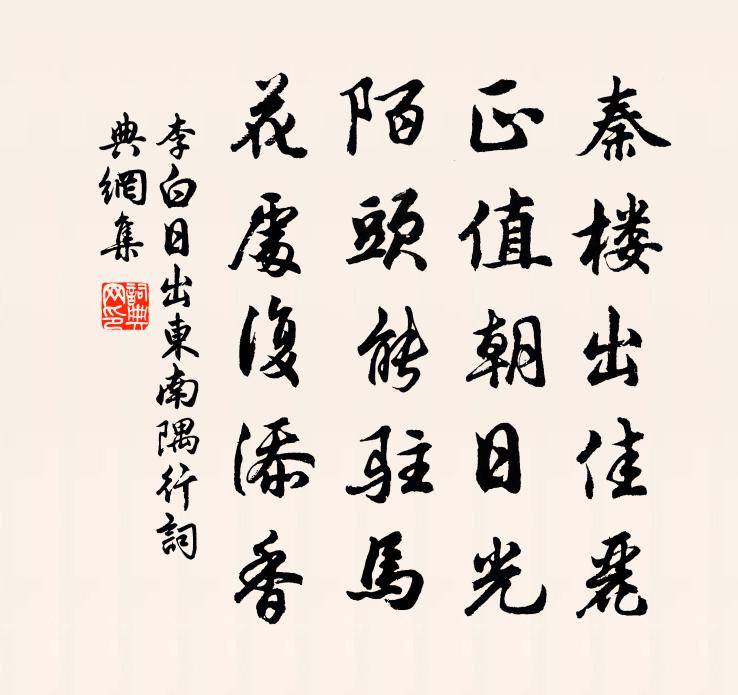 秦楼出佳麗
正值朝日光
陌頭能駐馬
花處復添香
李白日出東南隅行詞
典網集
詞典網印